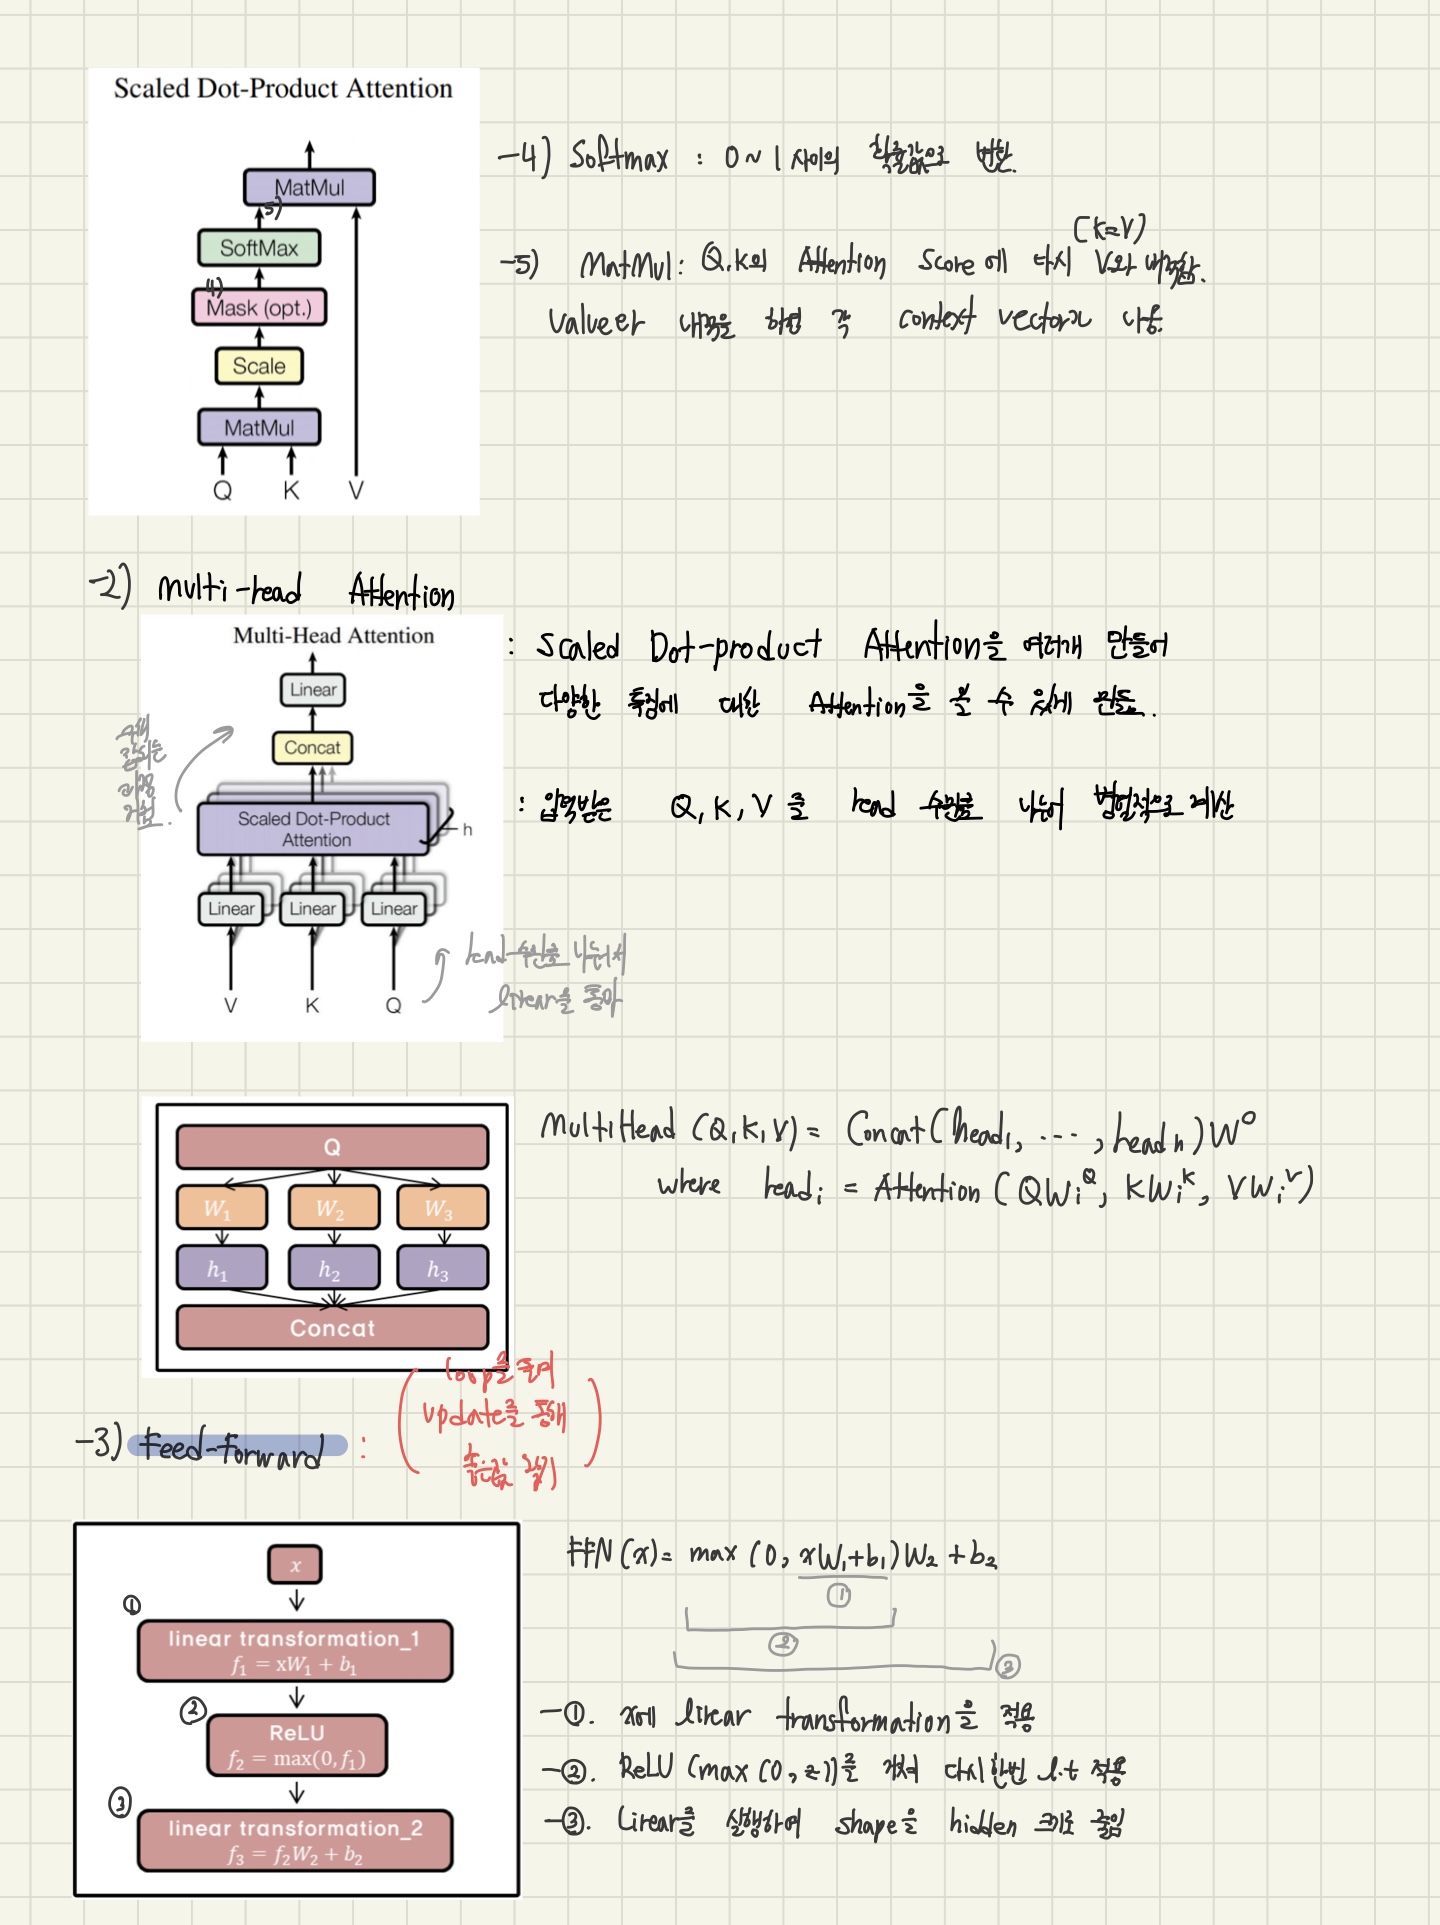 Scaled Dot-Product Attention
MatMul
5)
SoftMax
4)
Mask (opt.)
Scale
MatMul
Q K V
-4) Softmax : 0 ~ 1 사이의 확률값으로 변환.
(K=V)
-5) MatMul : Q.K의 Attention Score에 다시 V와 내적함.
Value와 내적을 하면 각 context vector가 나옴.
-2) Multi-head Attention
Multi-Head Attention
Linear
Concat
Scaled Dot-Product
Attention
h
Linear Linear Linear
V K Q
과정
거침.
: Scaled Dot-product Attention을 여러개 만들어
다양한 특징에 대한 Attention을 볼 수 있게 만듦.
: 입력받은 Q, K, V를 head 수만큼 나눠 병렬적으로 계산
head 수만큼 나눠서
linear을 통과
Q
W1 W2 W3
h1 h2 h3
Concat
MultiHead (Q,K,V) = Concat(head1, ..., headh)W^O
where headi = Attention (QWi^Q, KWi^K, VWi^V)
-3) Feed-Forward :
(loop를 돌며
update를 통해
좋은값 찾기)
x
①
linear transformation_1
f1 = xW1 + b1
②
ReLU
f2 = max(0, f1)
③
linear transformation_2
f3 = f2W2 + b2
FFN(x) = max (0, xW1+b1)W2 + b2
①
②
③
-①. x에 linear transformation을 적용
-②. ReLU (max (0, z))를 거쳐 다시한번 l.t 적용
-③. Linear를 실행하여 shape을 hidden 크기로 줄임